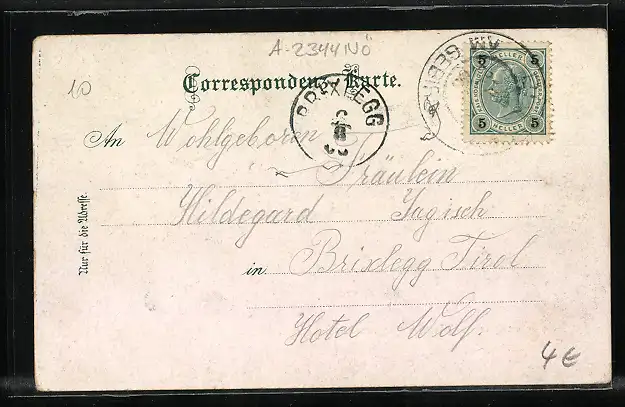 A-2344NÖ
10
Correspondenz-Karte.
BRIXLEGG
5 HELLER 5
5 HELLER 5
An Wohlgeboren
Fräulein
Hildegard Jagisch
in Brixlegg Tirol
Hotel Wolf.
Nur für die Adresse.
4€